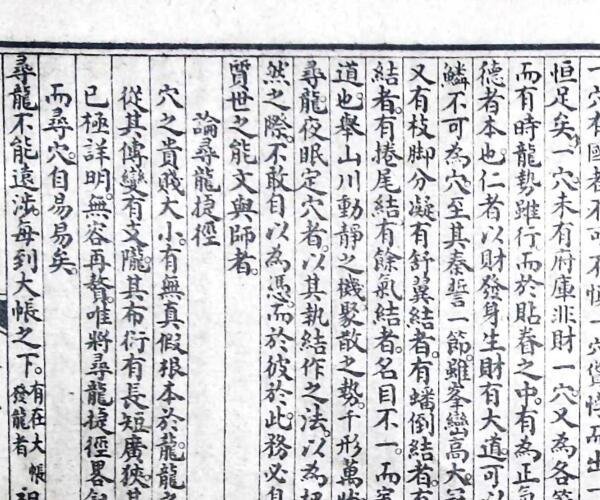 一穴有國者不可不慎一穴僻悖而出一
恒足矣一穴未有府庫非財一穴又為各
而有時龍勢雖行而於貼脊之中有為正氣
德者本也仁者以財發身生財有大道可以
鱗不可為穴至其秦誓一節雖峯巒高大
又有枝脚分凝有舒翼結者有蟠倒結者有
結者有捲尾結有餘氣結者名目不一而
道也舉山川動靜之機聚散之勢千形萬狀
尋龍夜眠定穴者以其執結作之法以為
然之際不敢自以為憑而於彼於此務必
質世之能文與師者
論尋龍捷徑
穴之貴賤大小有無真假根本於龍龍之
從其傳變有支隴其布衍有長短廣狹其
已極詳明無容再贅唯將尋龍捷徑畧
而尋穴自易易矣
尋龍不能遠涉毎到大帳之下有在大帳發龍者